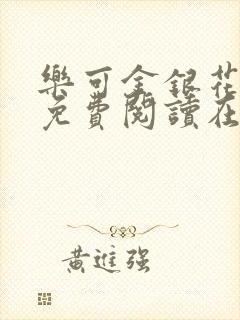 樂可金銀花
免費閱讀在
黃進强